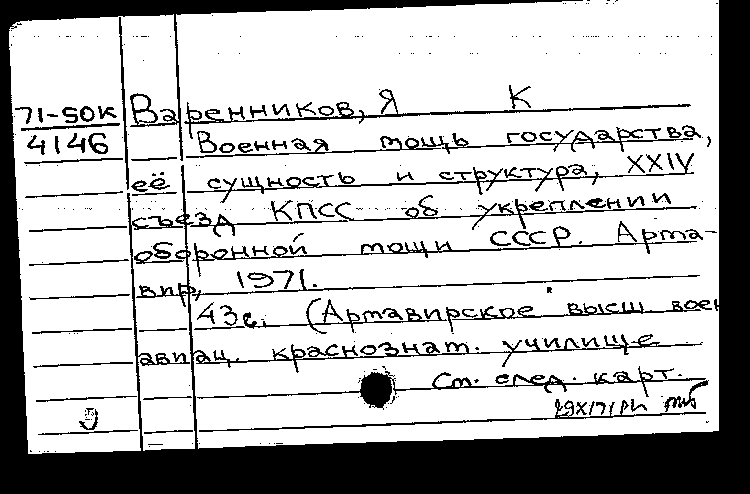 71-SOK Варенников, Я К
4146 Военная мощь государства,
её сущность и структура, XXIV
съезд КПСС об укреплении
оборонной мощи СССР. Арма-
вир, 1971.
43с. (Армавирское высш. воен
авиац. краснознам. училище
См. след. карт.